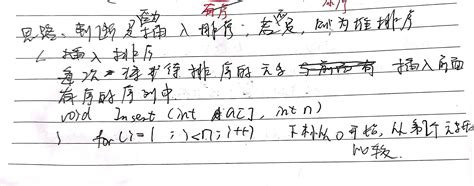 有序
思路、判断是否为插入排序,若是,则为堆排序
插入排序
每次 将待排序的元素 插入前面
有序的序列中.
void Insert (int a[], int n)
{ for(i=1; i<n; i++) 下标从0开始,从第2个元素
比较.